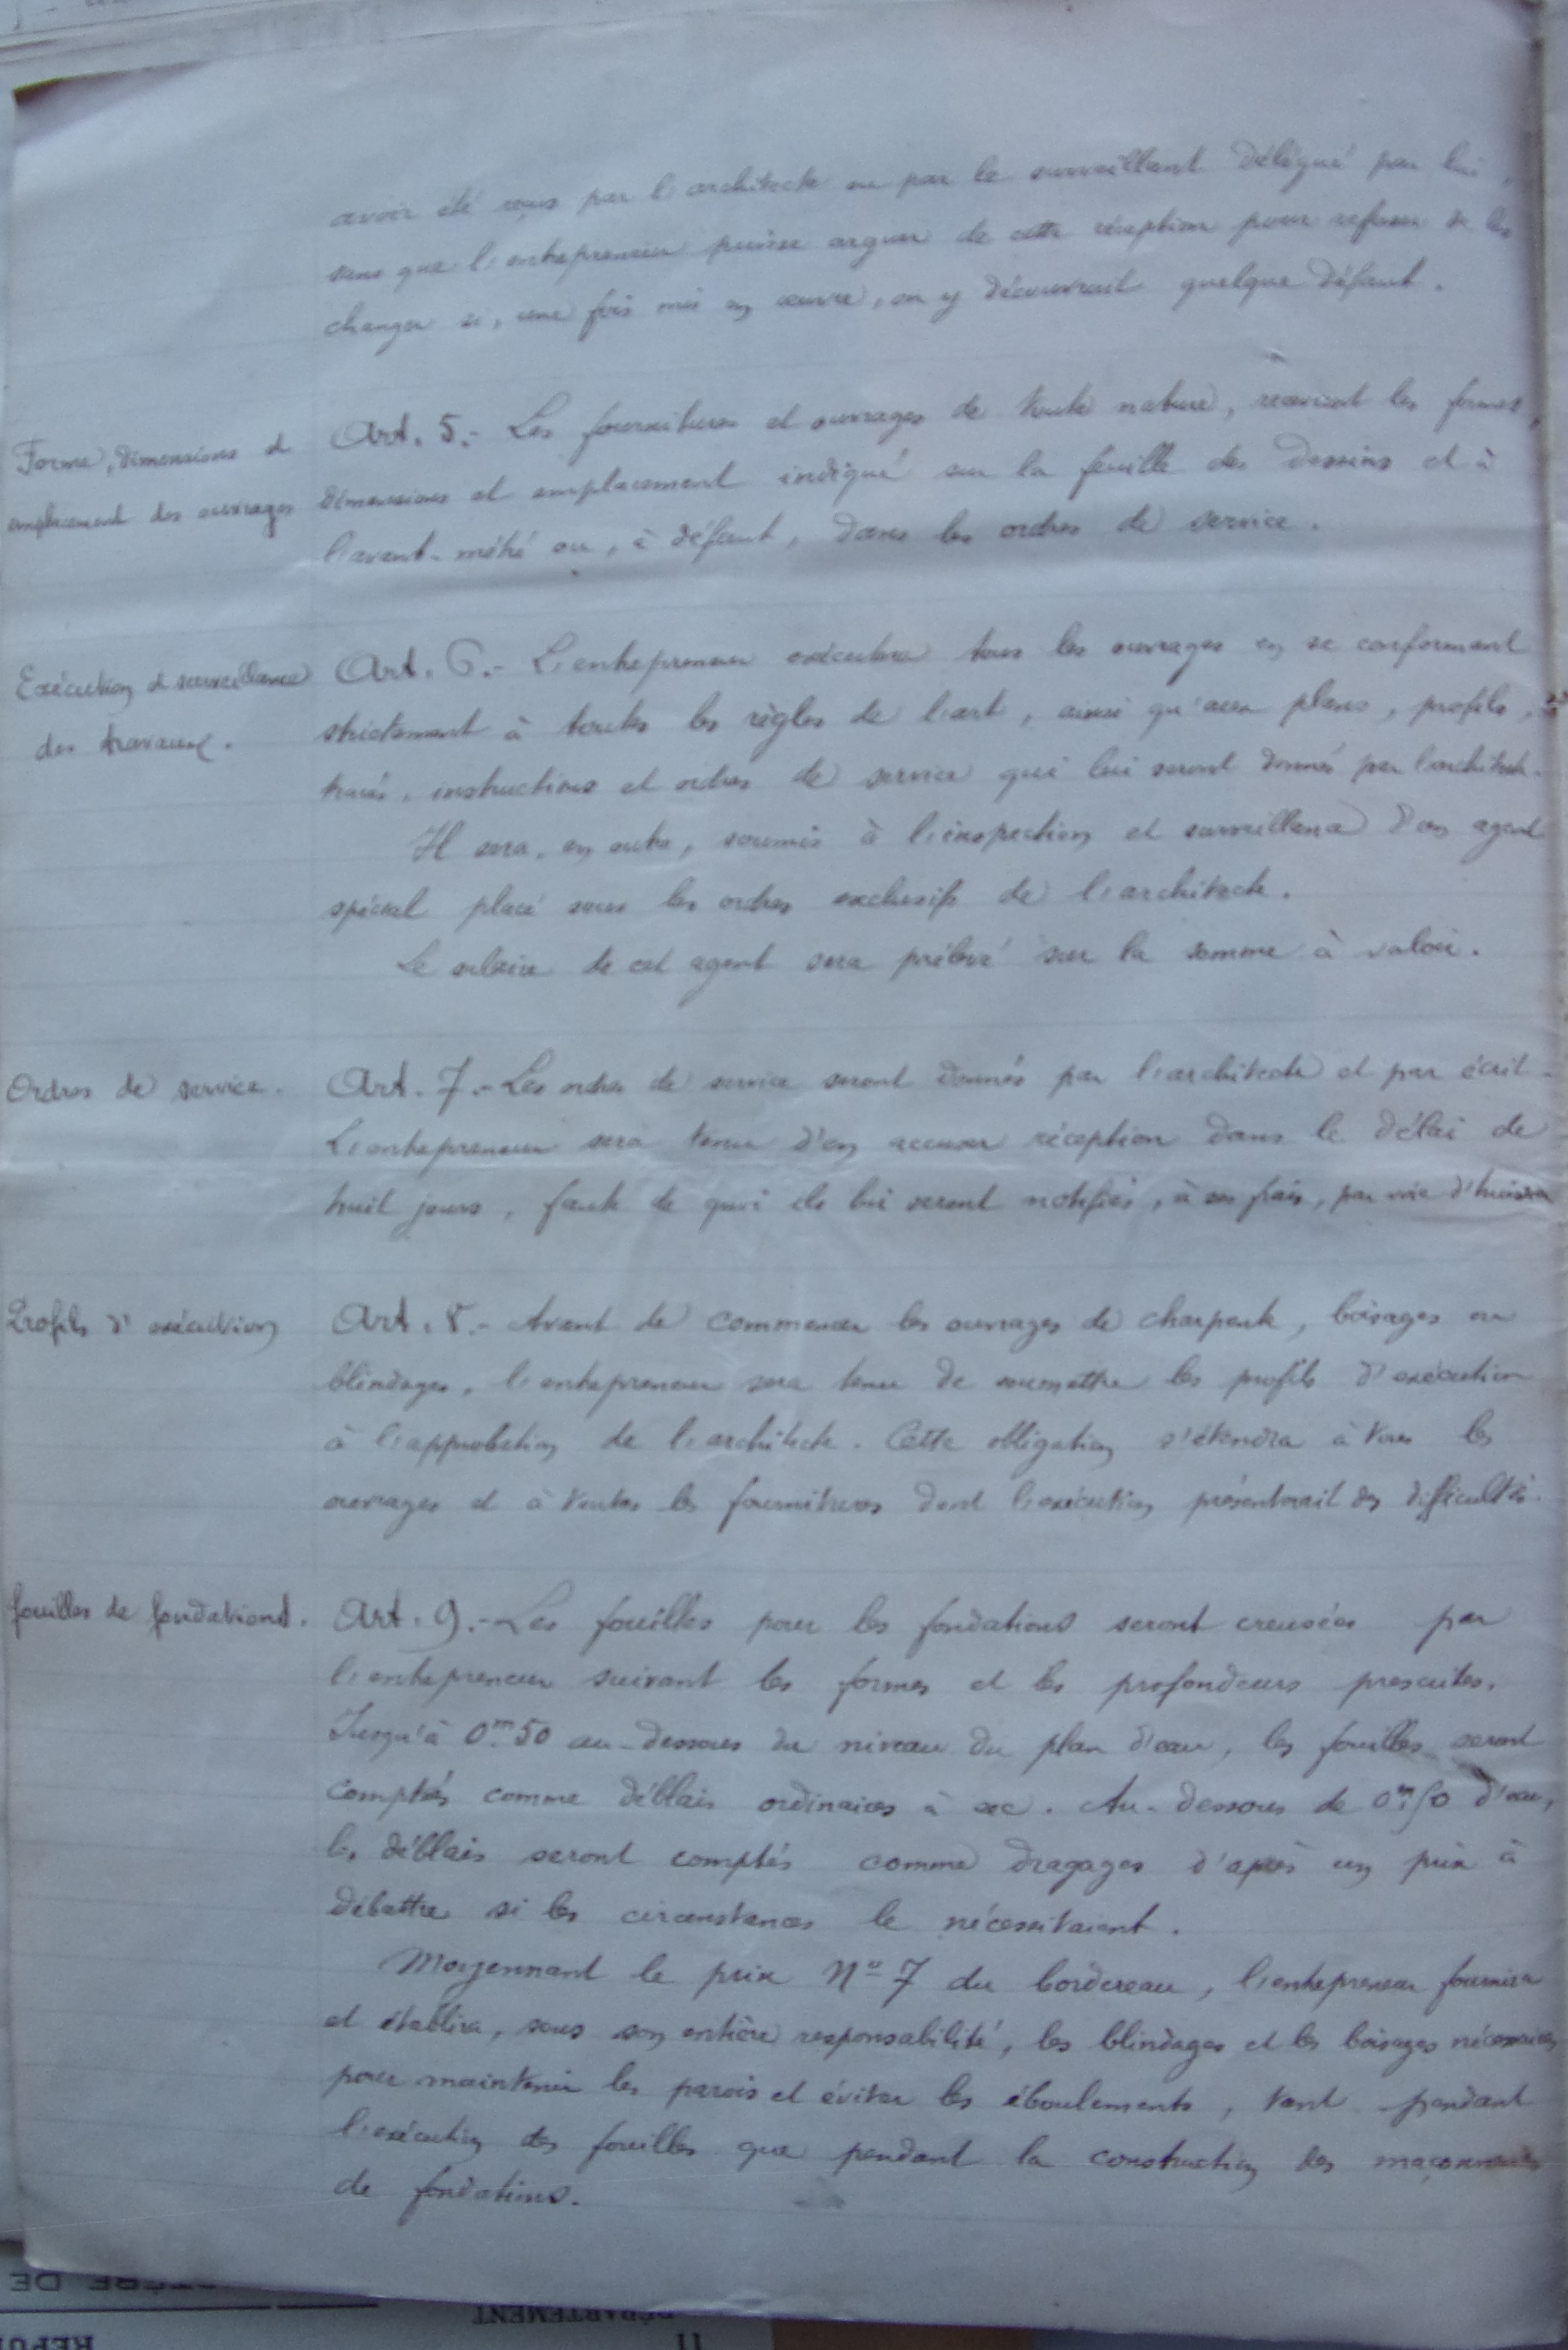 avoir été reçus par l'architecte ou par le surveillant délégué par lui,
sans que l'entrepreneur puisse arguer de cette réception pour refuser de les
changer si, une fois mis en œuvre, on y découvrait quelque défaut.
Forme, dimensions et
emplacement des ouvrages
Art. 5.- Les fournitures et ouvrages de toute nature, recevront les formes,
dimensions et emplacement indiqué sur la feuille des dessins et à
l'avant-métré ou, à défaut, dans les ordres de service.
Exécution et surveillance
des travaux.
Art. 6.- L'entrepreneur exécutera tous les ouvrages en se conformant
strictement à toutes les règles de l'art, ainsi qu'aux plans, profils,
tracés, instructions et ordres de service qui lui seront donnés par l'architecte.
Il sera, en outre, soumis à l'inspection et surveillance d'un agent
spécial placé sous les ordres exclusifs de l'architecte.
Le salaire de cet agent sera prélevé sur la somme à valoir.
Ordres de service.
Art. 7.- Les ordres de service seront donnés par l'architecte et par écrit.
L'entrepreneur sera tenu d'en accuser réception dans le délai de
huit jours, faute de quoi ils lui seront notifiés, à ses frais, par voie d'huissier
Profils d'exécution
Art. 8.- Avant de commencer les ouvrages de charpente, boisages ou
blindages, l'entrepreneur sera tenu de soumettre les profils d'exécution
à l'approbation de l'architecte. Cette obligation s'étendra à tous les
ouvrages et à toutes les fournitures dont l'exécution présenterait des difficultés.
fouilles de fondations.
Art. 9.- Les fouilles pour les fondations seront creusées par
l'entrepreneur suivant les formes et les profondeurs prescrites.
Jusqu'à 0m.50 au-dessous du niveau du plan d'eau, les fouilles seront
comptés comme déblais ordinaires à sec. Au-dessous de 0m.50 d'eau,
les déblais seront comptés comme dragages d'après un prix à
débattre si les circonstances le nécessitaient.
Moyennant le prix No 7 du bordereau, l'entrepreneur fournira
et établira, sous son entière responsabilité, les blindages et les boisages nécessaires
pour maintenir les parois et éviter les éboulements, tant pendant
l'exécution des fouilles que pendant la construction des maçonneries
de fondations.
DÉPARTEMENT